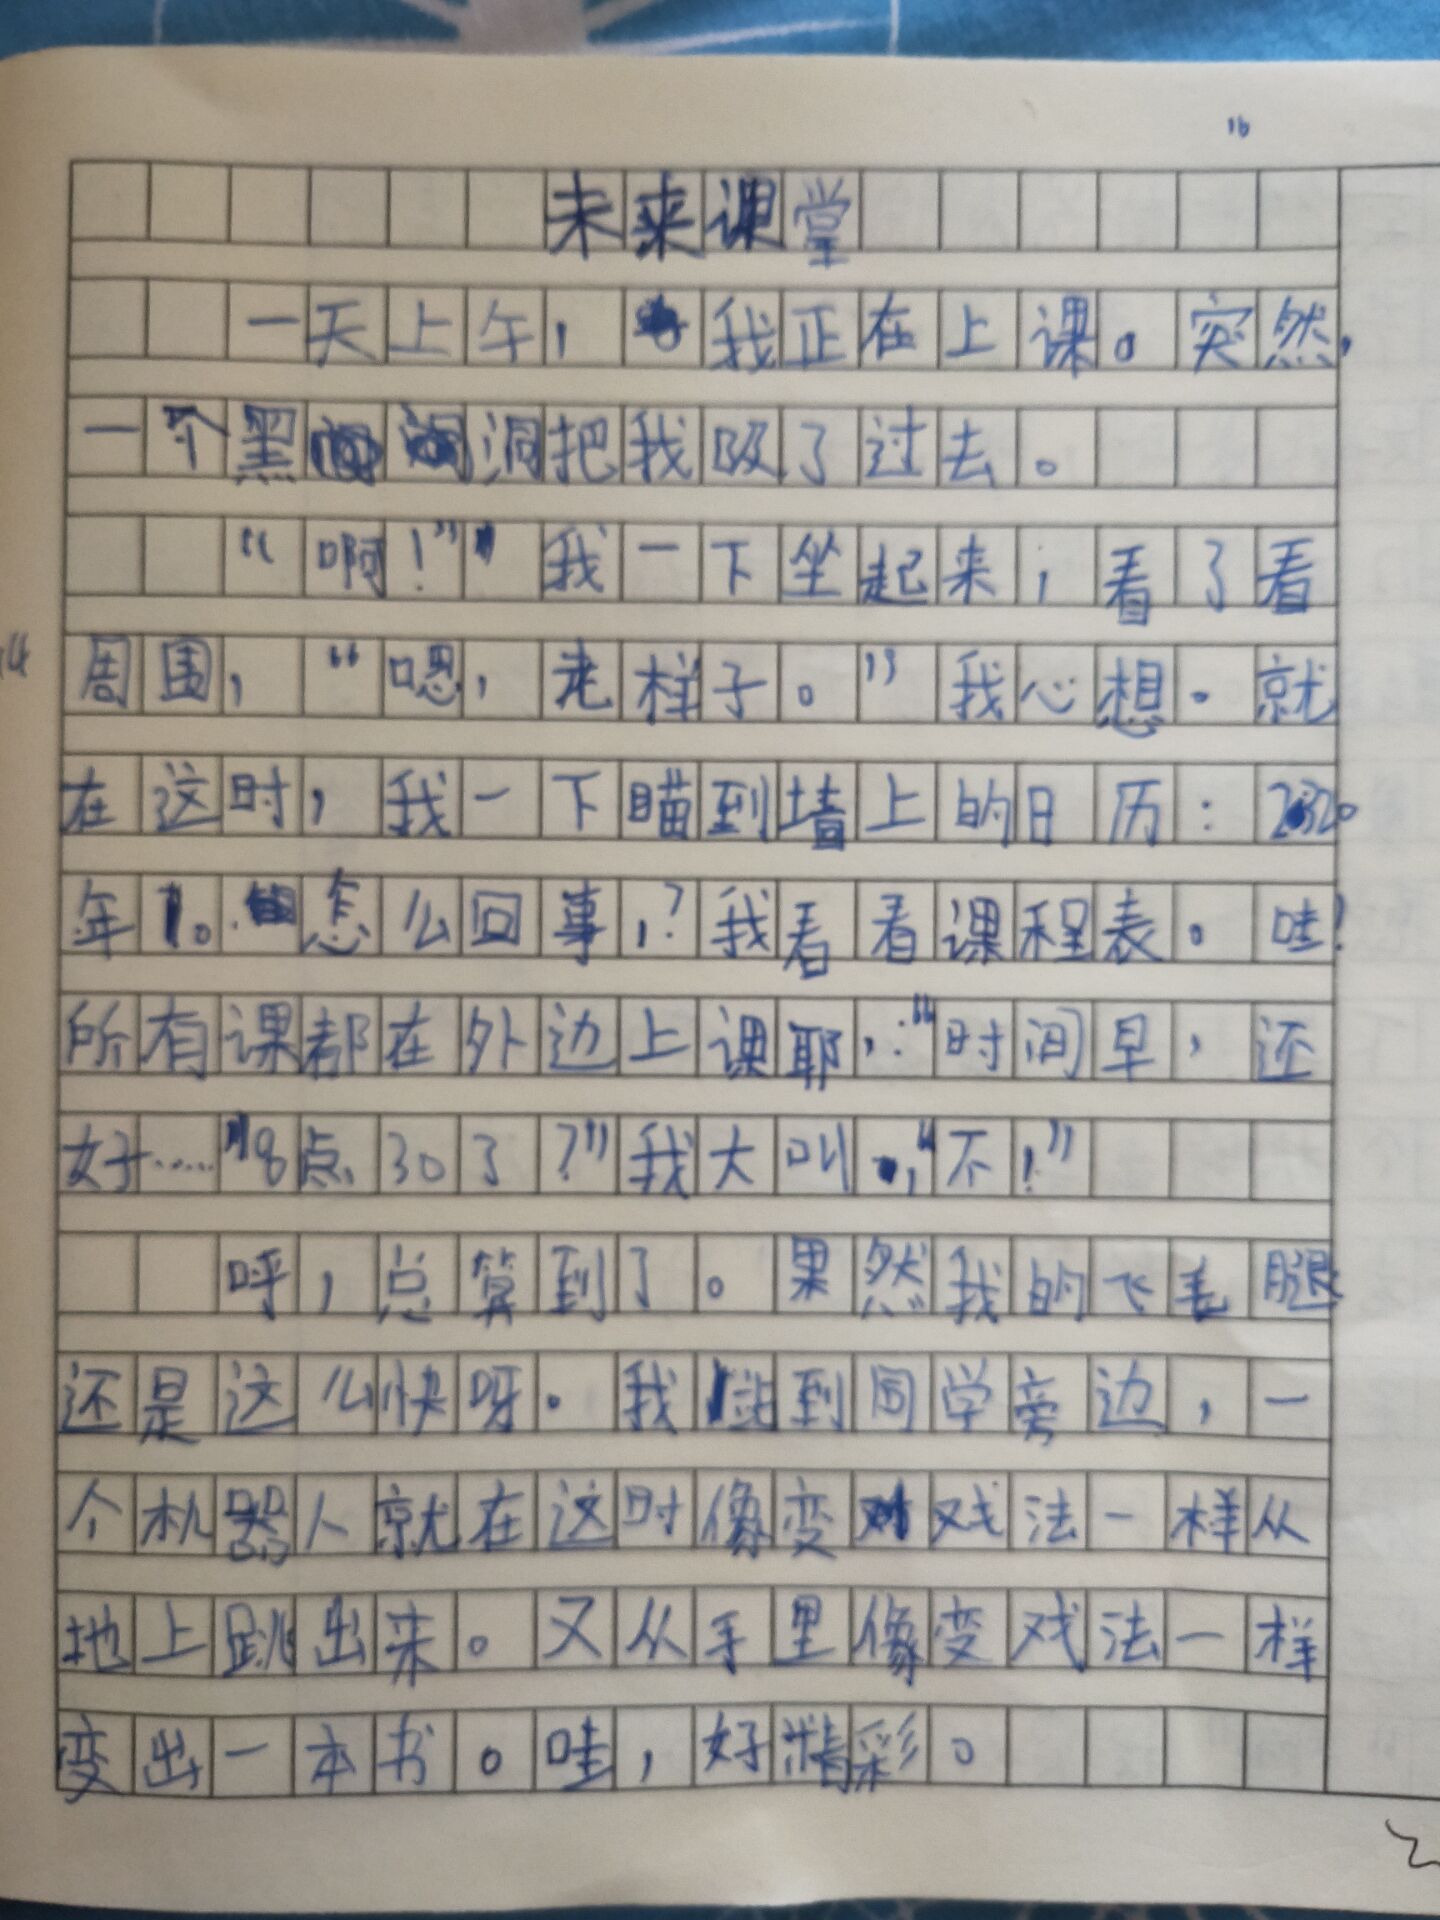 16
未来课堂
一天上午，我正在上课。突然，
一个黑洞把我吸了过去。
“啊！”我一下坐起来，看了看
周围，“嗯，老样子。”我心想。就
在这时，我一下瞄到墙上的日历：2320
年。怎么回事，？我看看课程表。哇！
所有课都在外边上课耶，：“时间早，还
好……”8点30了？”我大叫，“不！”
呼，总算到了。果然我的飞毛腿
还是这么快呀。我站到同学旁边，一
个机器人就在这时像变戏法一样从
地上跳出来。又从手里像变戏法一样
变出一本书。哇，好精彩。